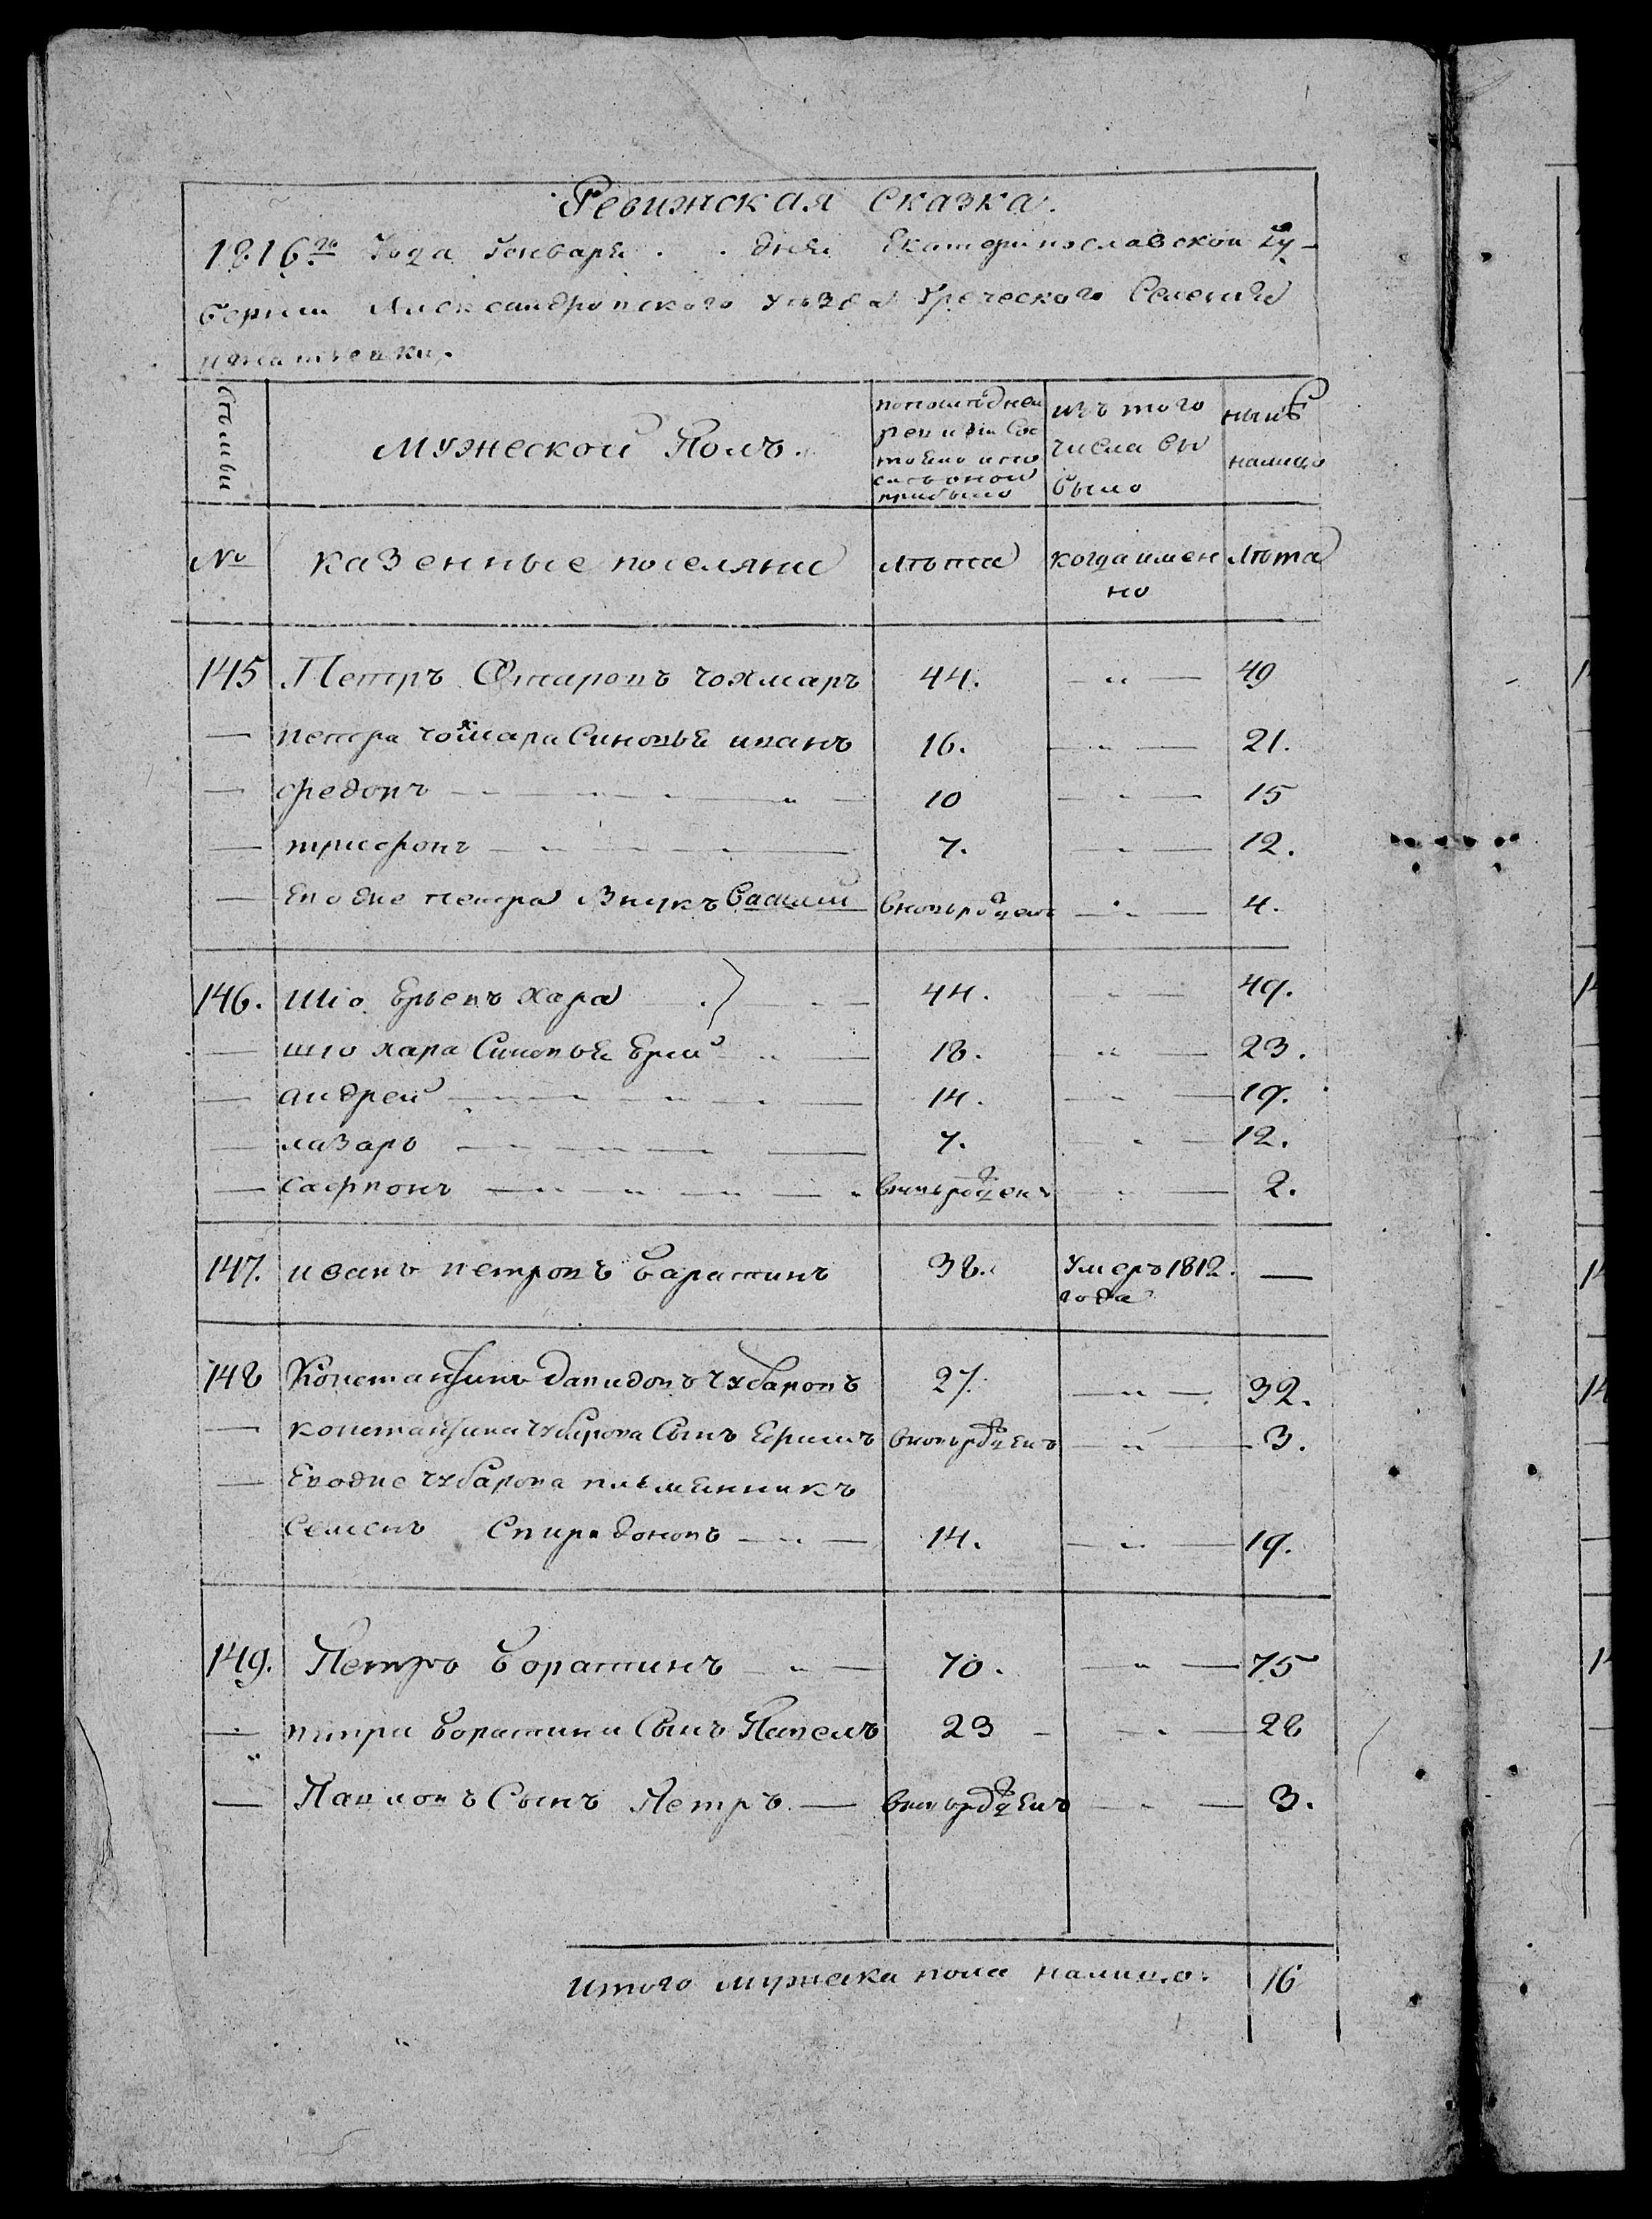 Ревижская Сказка.
1816го Года Генваря . . дня Екатеринославской Гу-
бернии Александровского уезда Греческого Селения

Семьи
Мужеской Полъ.
по последней
ревизии сос
тояло и по
сле оной
прибыло
изъ того
числа вы
было
ныне
налицо
№
казенные поселяне
лѣта
когда имен
но
лѣта
145 Петръ Отаровъ чохмаръ 44. — „ — 49
— петра чохмара Синовья иванъ 16. — „ — 21.
— федоръ — „ — 10 — „ — 15
— трифонъ — „ — 7. — „ — 12.
— Ево же петра Внукъ Василий вновь рожденъ — „ — 4.
146. Шіо Еръевъ Хара 44. — „ — 49.
— шіо хара Синовья Ерий 18. — „ — 23.
— андрей — „ — 14. — „ — 19.
— лазаръ — „ — 7. — „ — 12.
— сафронъ — „ — вновь рожденъ — „ — 2.
147. иванъ петровъ Барастинъ 38. Умеръ 1812.
года —
148 Константинъ Давидовъ Чубаровъ 27. — „ — 32.
— константина чубарова Сынъ Ефимъ вновь рожденъ — „ — 3.
— Евоже чубарова племенникъ
Семенъ Спиридоновъ — „ — 14. — „ — 19.
149. Петръ Борастинъ — „ — 70. — „ — 75
— петра борастина Сынъ Павелъ 23 — „ — 28
— Павловъ Сынъ Петръ — вновь рожденъ — „ — 3.
Итого мужеска пола налицо. 16